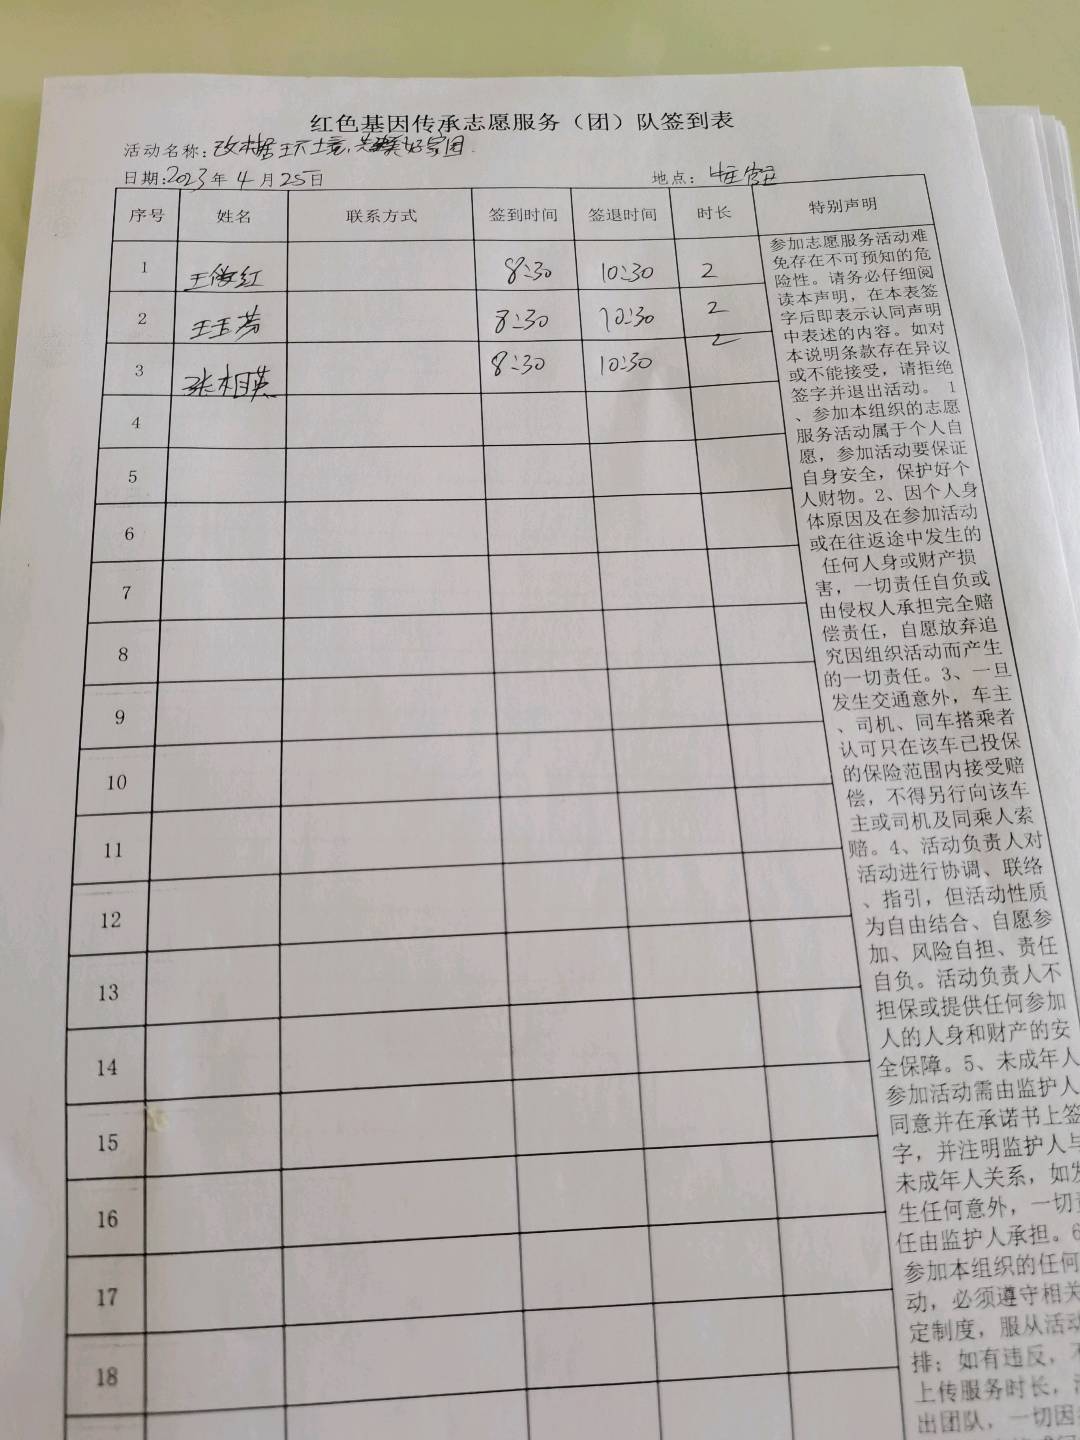 红色基因传承志愿服务（团）队签到表
活动名称：改 居环境，美好家园
日期：2023年4月25日 地点：
序号 姓名 联系方式 签到时间 签退时间 时长 特别声明
1 王 红 8:30 10:30 2
2 王玉芳 8:30 10:30 2
3 张相英 8:30 10:30 2
4
5
6
7
8
9
10
11
12
13
14
15
16
17
18
参加志愿服务活动难
免存在不可预知的危
险性。请务必仔细阅
读本声明，在本表签
字后即表示认同声明
中表述的内容。如对
本说明条款存在异议
或不能接受，请拒绝
签字并退出活动。 1
、参加本组织的志愿
服务活动属于个人自
愿，参加活动要保证
自身安全，保护好个
人财物。2、因个人身
体原因及在参加活动
或在往返途中发生的
任何人身或财产损
害，一切责任自负或
由侵权人承担完全赔
偿责任，自愿放弃追
究因组织活动而产生
的一切责任。3、一旦
发生交通意外，车主
、司机、同车搭乘者
认可只在该车已投保
的保险范围内接受赔
偿，不得另行向该车
主或司机及同乘人索
赔。4、活动负责人对
活动进行协调、联络
、指引，但活动性质
为自由结合、自愿参
加、风险自担、责任
自负。活动负责人不
担保或提供任何参加
人的人身和财产的安
全保障。5、未成年人
参加活动需由监护人
同意并在承诺书上签
字，并注明监护人与
未成年人关系，如发
生任何意外，一切责
任由监护人承担。6
参加本组织的任何
动，必须遵守相关
定制度，服从活动
排；如有违反，不
上传服务时长，
出团队，一切因